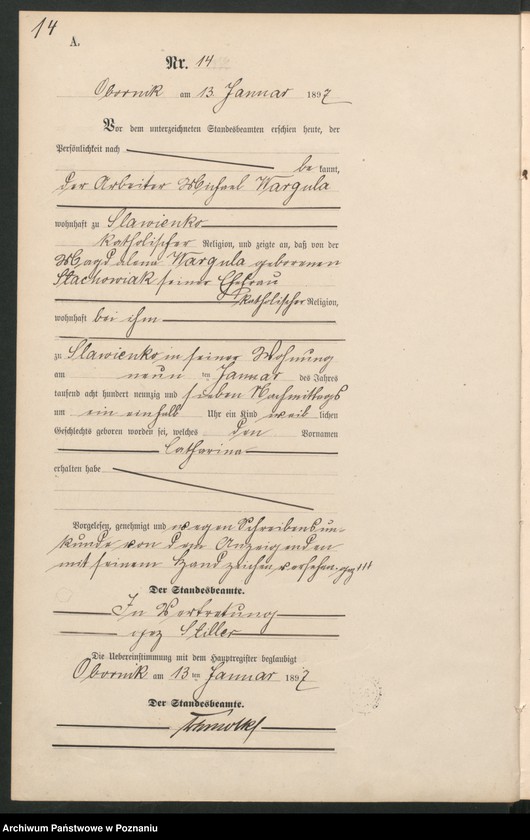 14
A.
Nr. 14
Obornik am 13 Januar 1897
Vor dem unterzeichneten Standesbeamten erschien heute, der
Persönlichkeit nach
be kannt,
der Arbeiter Michael Wargula
wohnhaft zu Slawienko
katholischer Religion, und zeigte an, daß von der
Magdalena Wargula geborenen
Stachowiak seiner Ehefrau
katholischer Religion,
wohnhaft bei ihm
zu Slawienko in seiner Wohnung
am neun ten Januar des Jahres
tausend acht hundert neunzig und sieben Nachmittags
um ein einhalb Uhr ein Kind weib lichen
Geschlechts geboren worden sei, welches den Vornamen
Catharina
erhalten habe
Vorgelesen, genehmigt und wegen Schreibensun-
kunde von dem Anzeigenden
mit seinem Handzeichen versehen. gez +++
Der Standesbeamte.
In Vertretung
gez Stiller
Die Uebereinstimmung mit dem Hauptregister beglaubigt
Obornik am 13 ten Januar 1897
Der Standesbeamte.
Archiwum Państwowe w Poznaniu